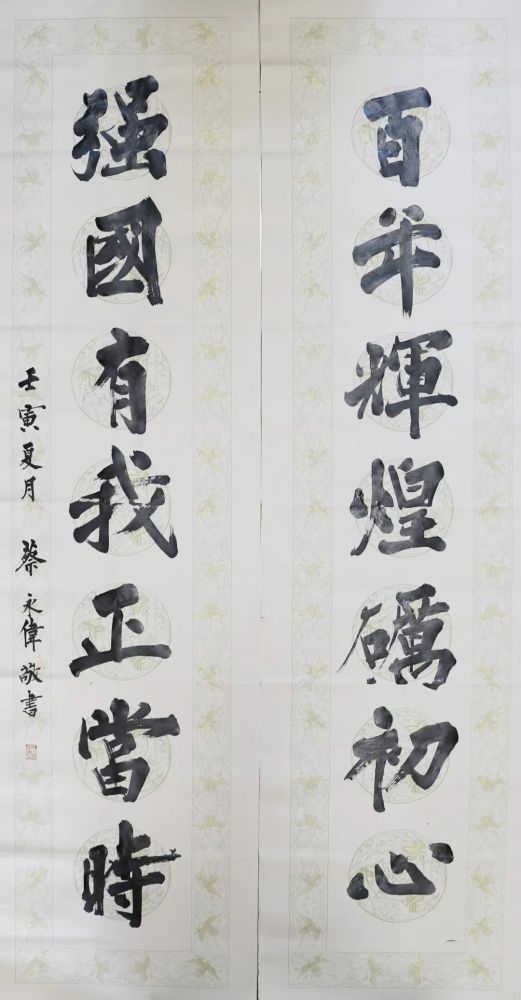 百年輝煌礪初心
强國有我正當時
壬寅夏月 蔡永偉敬書